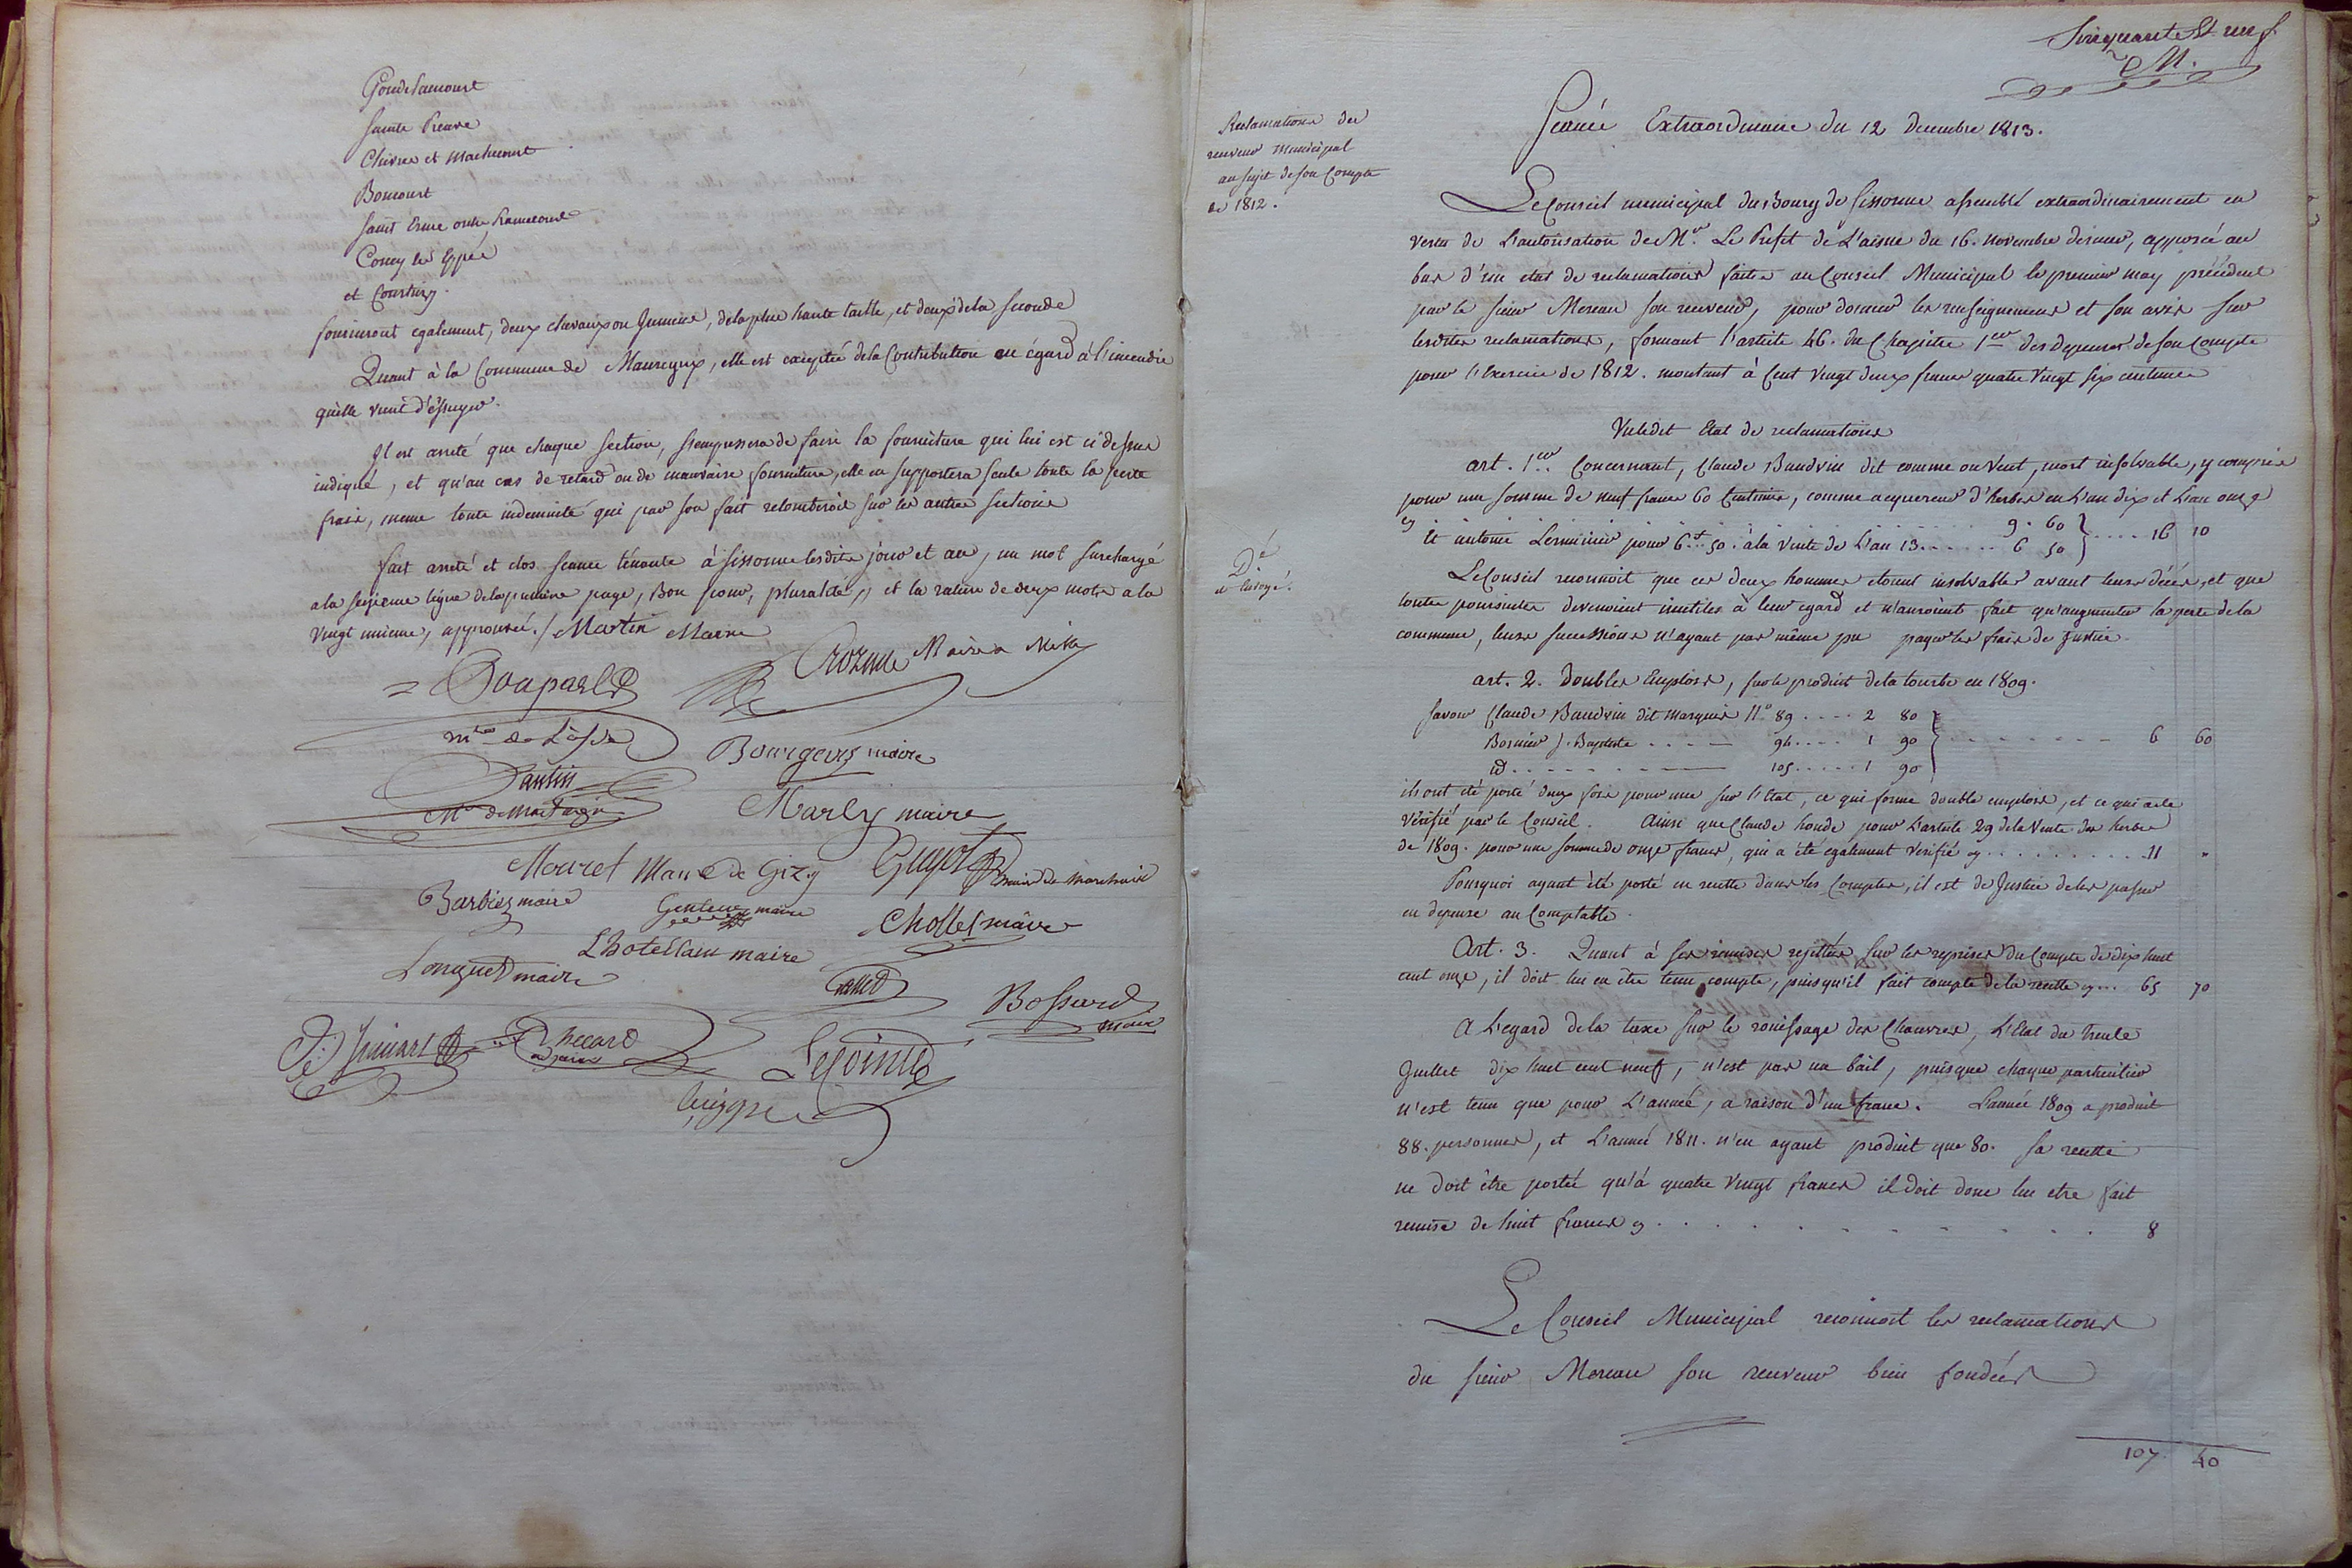 Goudelancourt
Sainte Preuve
Chivres et Machecourt
Boncourt
Saint Erme outre Ramecourt
Coucy les Eppes
et Courtrizy.
fourniront egalement, deux chevaux ou Jumens, de la plus haute taille, et deux de la seconde
Quant à la Commune de Mauregny, elle est exceptée de la Contribution eu égard à l'incendie
qu'elle vient d'éssuyer.
Il est arreté que chaque section, s'empressera de faire la fourniture qui lui est ci dessus
indiqué, et qu'au cas de retard ou de mauvaise fourniture, elle en supportera seule toute la perte
frais, meme toute indemnité qui par son fait retomberoit sur les autres sections
fait arreté et clos seance ténante à Sissonne lesdits jour et an, un mot surchargé
a la seizieme ligne de la premiere page, Bon pour, pluralité, et la rature de deux mots a la
vingt unieme, approuvé. / Martin Maire
Coupart
Crozme Maire a
Bourgeois maire
Marly maire
Mouret Maire de Gizy
Guyot maire de Marchais
Barbier maire
maire
Chollet maire
Longuet maire
Lhotellain maire
Bossard
maire
Lecointe
Cinquante Et neuf
M.
Reclamations du
receveur municipal
au sujet de son Compte
de 1812.
Séance Extraordinaire du 12 Decembre 1813.
Le Conseil municipal du Bourg de Sissonne assemblé extraordinairement en
vertu de L'autorisation de Mr. Le Préfet de L'aisne du 16. novembre dernier, apposée au
bas d'un etat de reclamations faites au Conseil Municipal le premier may précédent
par le sieur Moreau son receveur, pour donner les renseignemens et son avis sur
lesdites reclamations, formant l'article 46. du Chapitre 1er des depenses de son Compte
pour l'Exercice de 1812. montant à Cent vingt deux francs quatre vingt six centimes
Vu ledit Etat de reclamations
art. 1er. Concernant, Claude Baudvin dit comme on veut, mort insolvable, y compris
pour une somme de neuf francs 60 Centimes, comme acquereur d'herbes en L'an dix et L'an onze
cy 9. 60 } .... 16 10
Et antoine Lerminier pour 6f. 50. à la vente de L'an 13 ...... 6 50
Dé
et envoyé.
Le Conseil reconnoit que ces deux hommes etoient insolvables avant leurs décés, et que
toutes poursuites devenoient inutiles à leur egard et n'auroient fait qu'augmenter la perte de la
commune, leurs successions n'ayant pas même pu payer les frais de Justice.
art. 2. Doubles Emplois, sur le produit de la tourbe en 1809.
Savoir Claude Baudvin dit marquis No 89 .... 2 80
Bornier J. Baptiste .... 96 .... 1 90 } .... 6 60
id .... 105 .... 1 90
ils ont été porté deux fois pour une sur l'Etat, ce qui forme double emplois, et ce qui a ete
vérifié par le Conseil. Ainsi que Claude houde pour L'article 29 de la vente des herbes
de 1809. pour une somme de onze francs, qui a été egalement verifié cy .......... 11 "
Pourquoi ayant été porté en recette dans les Comptes, il est de Justice de les passer
en depense au Comptable.
Art. 3. Quant à ses remises rejettées sur les reprises du Compte de dix huit
cent onze, il doit lui en etre tenu compte, puisqu'il fait compte de la recette cy ... 65 70
A L'egard de la taxe sur le rouissage des Chanvres, L'Etat du trente
Juillet dix huit cent neuf, n'est pas un bail, puisque chaque particulier
n'est tenu que pour L'année, a raison d'un franc. L'année 1809 a produit
88. personnes, et L'année 1811. n'en ayant produit que 80. sa recette
ne doit être portée qu'à quatre vingt francs il doit donc lui etre fait
remise de huit francs cy ............ 8
Le Conseil Municipal reconnoit les reclamations
du sieur Moreau son receveur bien fondées
107 40